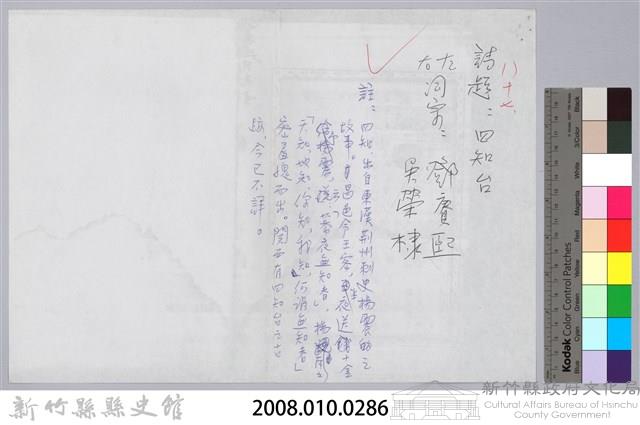 八十七、
詩題：四知台
左
右 詞宗：鄧賡熙
吳榮棣
註：四知，出自東漢荊州刺史楊震的之
故事。有昌邑令王客，夜送錢十金
給楊震，說「暮夜無知者」，楊
「天知，地知，你知，我知，何謂無知者」
羞愧而出。關西有四知台
今已不詳。
新竹縣縣史館
2008.010.0286
新竹縣政府文化局
Cultural Affairs Bureau of Hsinchu
County Government
Kodak Color Control Patches
Blue
Cyan
Green
Yellow
Red
Magenta
White
3/Color
Black